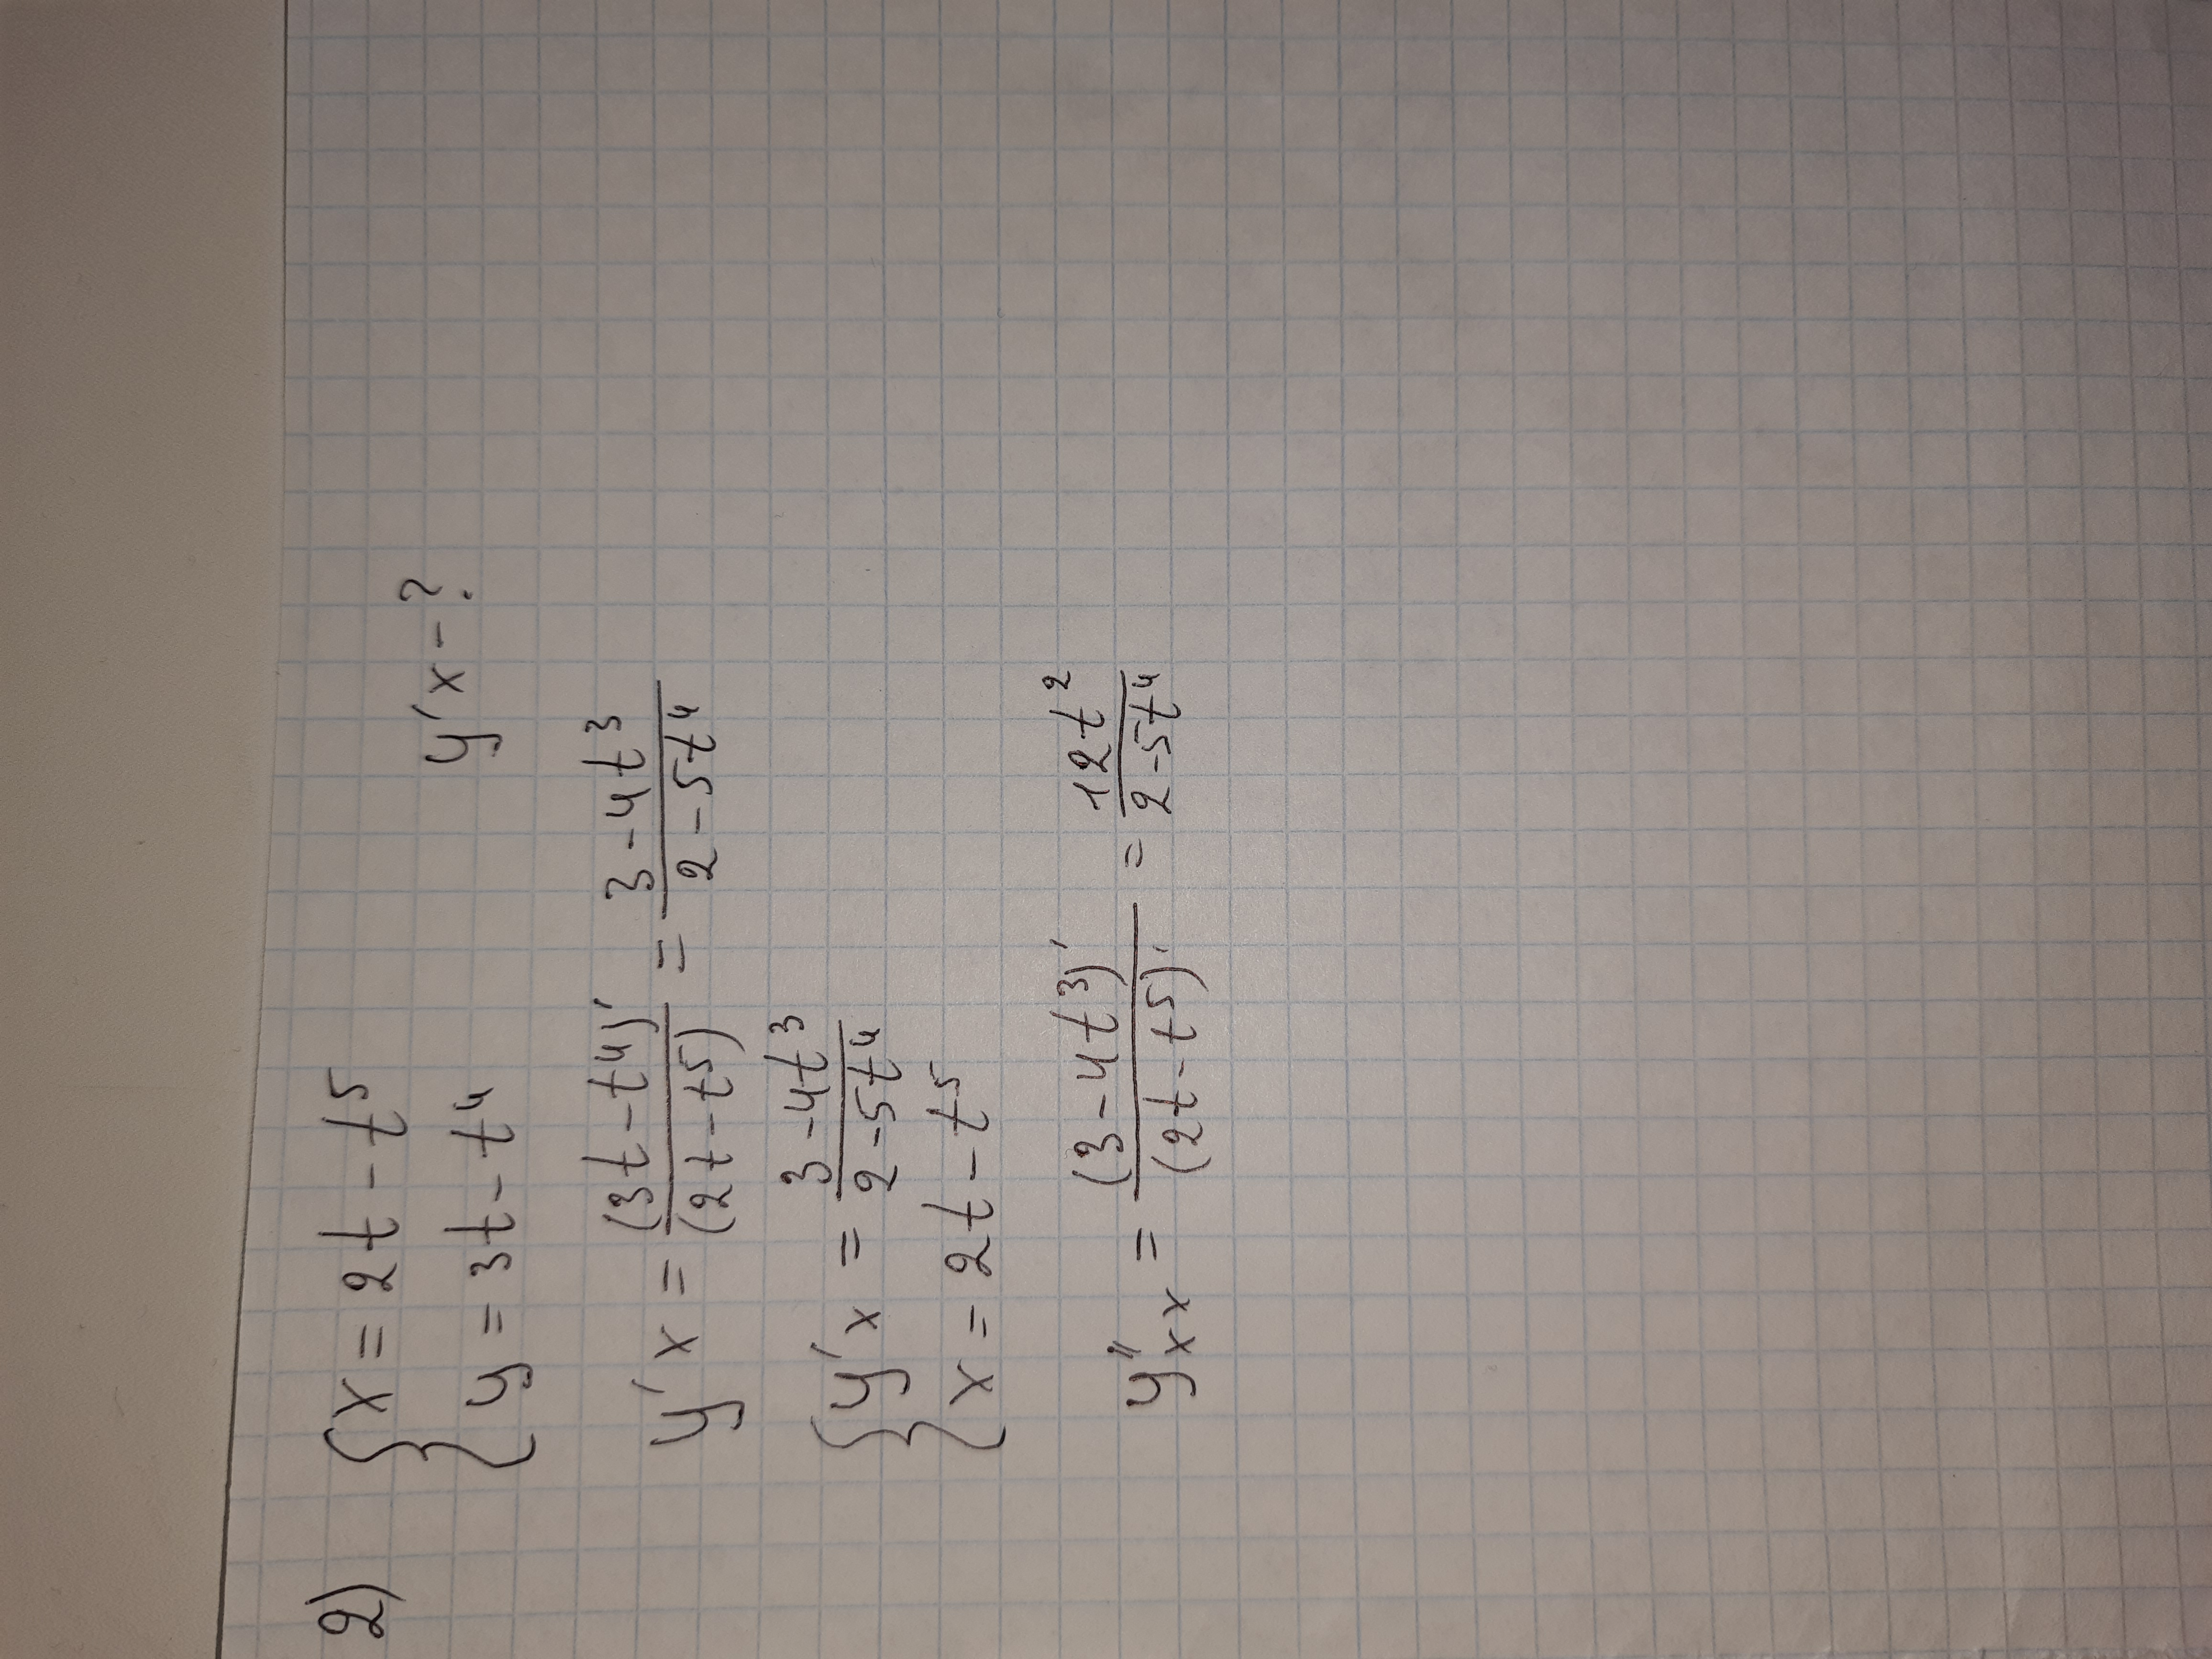 2) { x = 2t - t⁵
y'x - ?
{ y = 3t - t⁴
y'x = (3t - t⁴)' / (2t - t⁵) = 3 - 4t³ / 2 - 5t⁴
{ y'x = 3 - 4t³ / 2 - 5t⁴
{ x = 2t - t⁵
y''xx = (3 - 4t³)' / (2t - t⁵)' = 12t² / 2 - 5t⁴